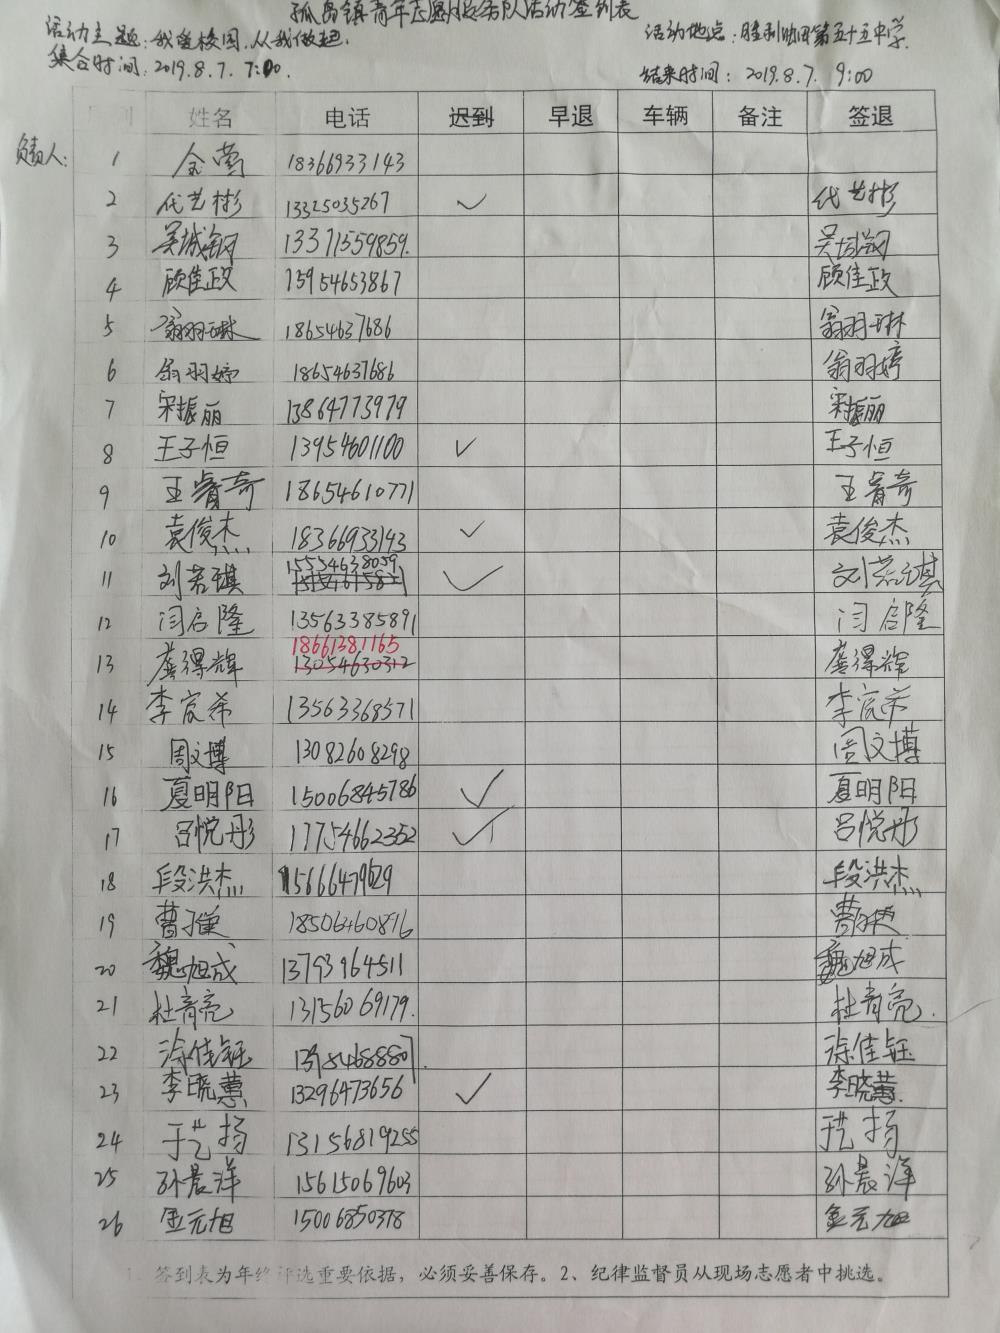 孤岛镇青年志愿服务队活动签到表
活动主题:我爱校园,从我做起. 活动地点:胜利油田第五十五中学.
集合时间:2019.8.7. 7:00. 结束时间:2019.8.7. 9:00
姓名 电话 迟到 早退 车辆 备注 签退
负责人: 1 18366933143
2 代艺彬 13325035267 ✓ 代艺彬
3 吴城钢 13371559859. 吴城钢
4 顾佳政 15954653867 顾佳政
5 翁羽琳 18654637686 翁羽琳
6 翁羽婷 18654637686 翁羽婷
7 宋振丽 13864773979 宋振丽
8 王子恒 13954601100 ✓ 王子恒
9 王睿奇 18654610771 王睿奇
10 袁俊杰 18366933143 ✓ 袁俊杰
11 刘若琪 15554638059 ✓ 刘若琪
12 闫启隆 13563385891 闫启隆
18661381165
13 龚得辉 13054630312 龚得辉
14 李宸希 13563368571 李宸希
15 周文博 13082608298 周文博
16 夏明阳 15006845786 ✓ 夏明阳
17 吕悦彤 17754662352 ✓ 吕悦彤
18 段洪杰 15666479629 段洪杰
19 18506460896
20 魏旭成 13793964511 魏旭成
21 杜青亮 13156069179. 杜青亮.
22 涂佳钰 涂佳钰
23 李晓蕙 13296473656 ✓ 李晓蕙
24 于艺扬 13156819255 于艺扬
25 孙晨洋 15615069603 孙晨洋
26 金元旭 15006850378 金元旭
签到表为年终评选重要依据，必须妥善保存。2、纪律监督员从现场志愿者中挑选。